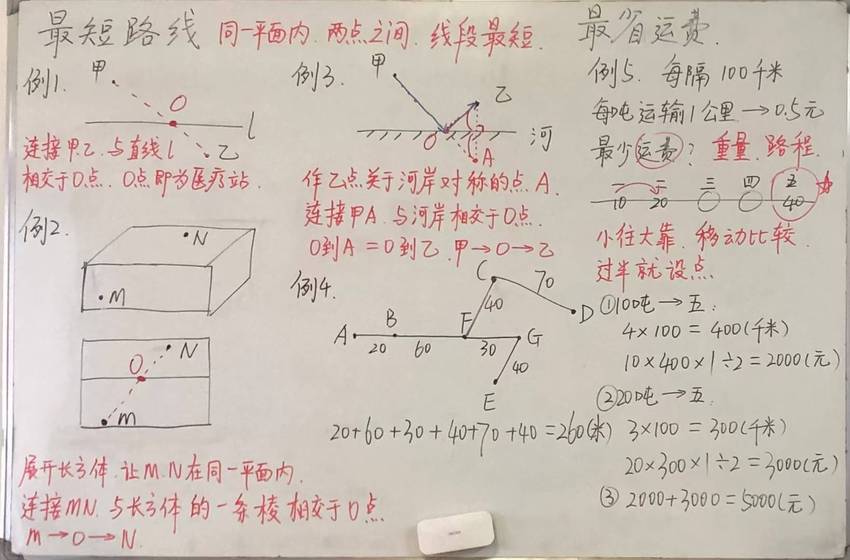 最短路线 同一平面内,两点之间,线段最短.
例1.
甲
O
l
乙
连接甲.乙,与直线l
相交于O点. O点即为医疗站.
例2.
N
M
N
O
M
展开长方体,让M.N在同一平面内.
连接MN,与长方体的一条棱相交于O点
M→O→N.
例3.
甲
乙
O
河
A
作乙点关于河岸对称的点A.
连接甲A,与河岸相交于O点.
O到A=O到乙.甲→O→乙
例4.
C
70
D
40
A
B
F
G
20
60
30
40
E
20+60+30+40+70+40=260(米)
最省运费.
例5. 每隔100千米
每吨运输1公里→0.5元
最少运费?重量.路程.
一 二 三 四 五
10 20 40
小往大靠,移动比较.
过半就设点.
①100吨→五:
4×100=400(千米)
10×400×1÷2=2000(元)
②200吨→五:
3×100=300(千米)
20×300×1÷2=3000(元)
③2000+3000=5000(元)